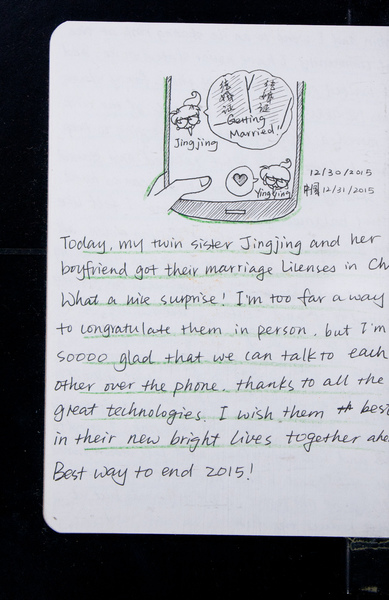 结婚证 结婚证
Getting
Married!
Jingjing
Yingying
12/30/2015
中国 12/31/2015
Today, my twin sister Jingjing and her
boyfriend got their marriage Lilenses in Ch
What a nice surprise! I'm too far a way
to congratulate them in person. but I'm
soooo glad that we can talk to each
other over the phone. thanks to all the
great technologies. I wish them best
in their new bright lives together ahe
Best way to end 2015!